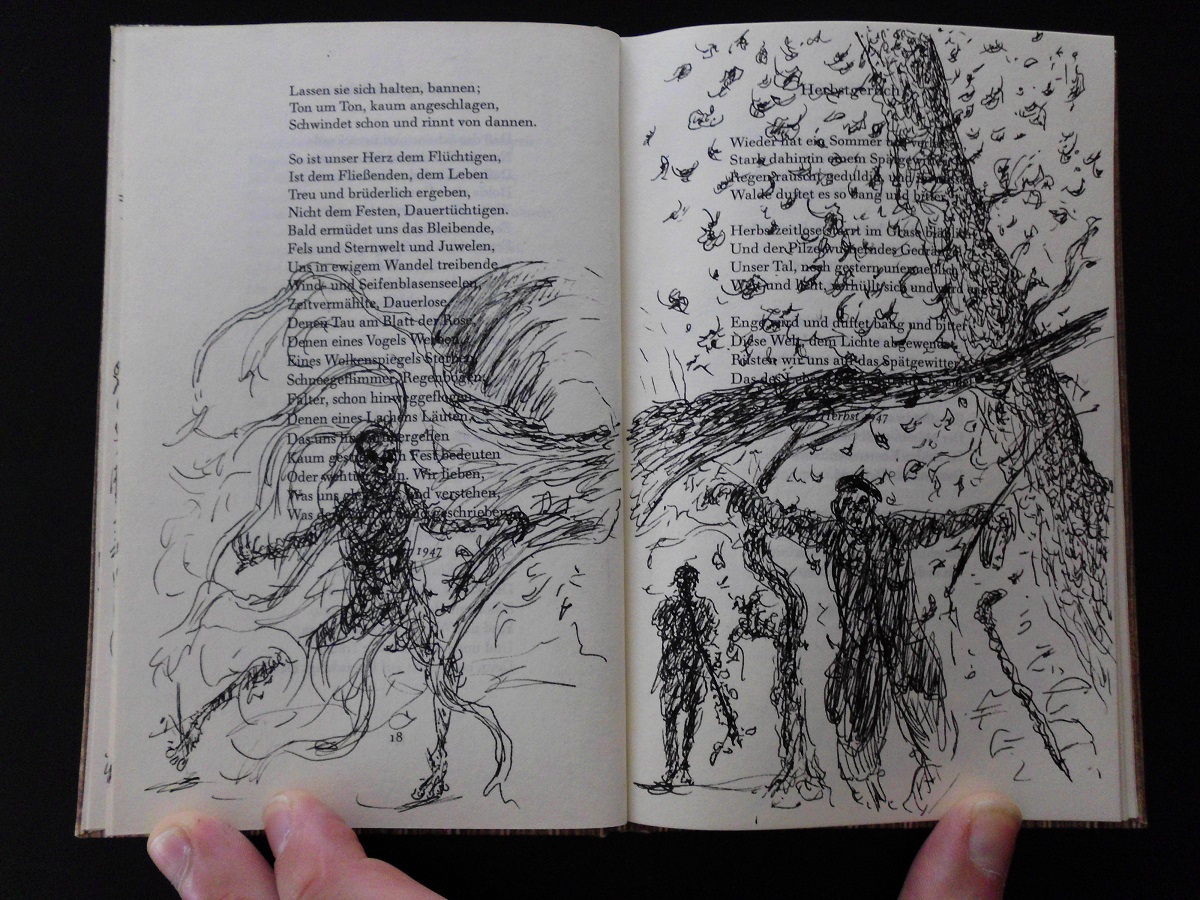 Lassen sie sich halten, bannen;
Ton um Ton, kaum angeschlagen,
Schwindet schon und rinnt von dannen.
So ist unser Herz dem Flüchtigen,
Ist dem Fließenden, dem Leben
Treu und brüderlich ergeben,
Nicht dem Festen, Dauertüchtigen.
Bald ermüdet uns das Bleibende,
Fels und Sternwelt und Juwelen,
Uns in ewigem Wandel treibende
Wind- und Seifenblasenseelen,
Zeitvermählte, Dauerlose,
Denen Tau am Blatt der Rose,
Denen eines Vogels Werben,
Eines Wolkenspiegels Sterben,
Schneegeflimmer, Regenbogen,
Falter, schon hinweggeflogen,
Denen eines Lachens Läuten,
Das uns im
Kaum Fest bedeuten
Oder Wir lieben,
Was uns und verstehen,
Was geschrieben
1947
18
Herbstgeruch
Wieder hat ein Sommer
Starb dahin in einem Spätgewitter
Regen rauscht geduldig, und
Walde duftet es so bang und bitter
Herbstzeitlose starrt im Grase
Und der Pilze wucherndes
Unser Tal, noch gestern unermeßlich
Weit und licht, verhüllt sich und wird
Enge wird und duftet bang und bitter
Diese Welt, dem Lichte abgewendet
Rüsten wir uns auf das Spätgewitter
Das des
Herbst 1947